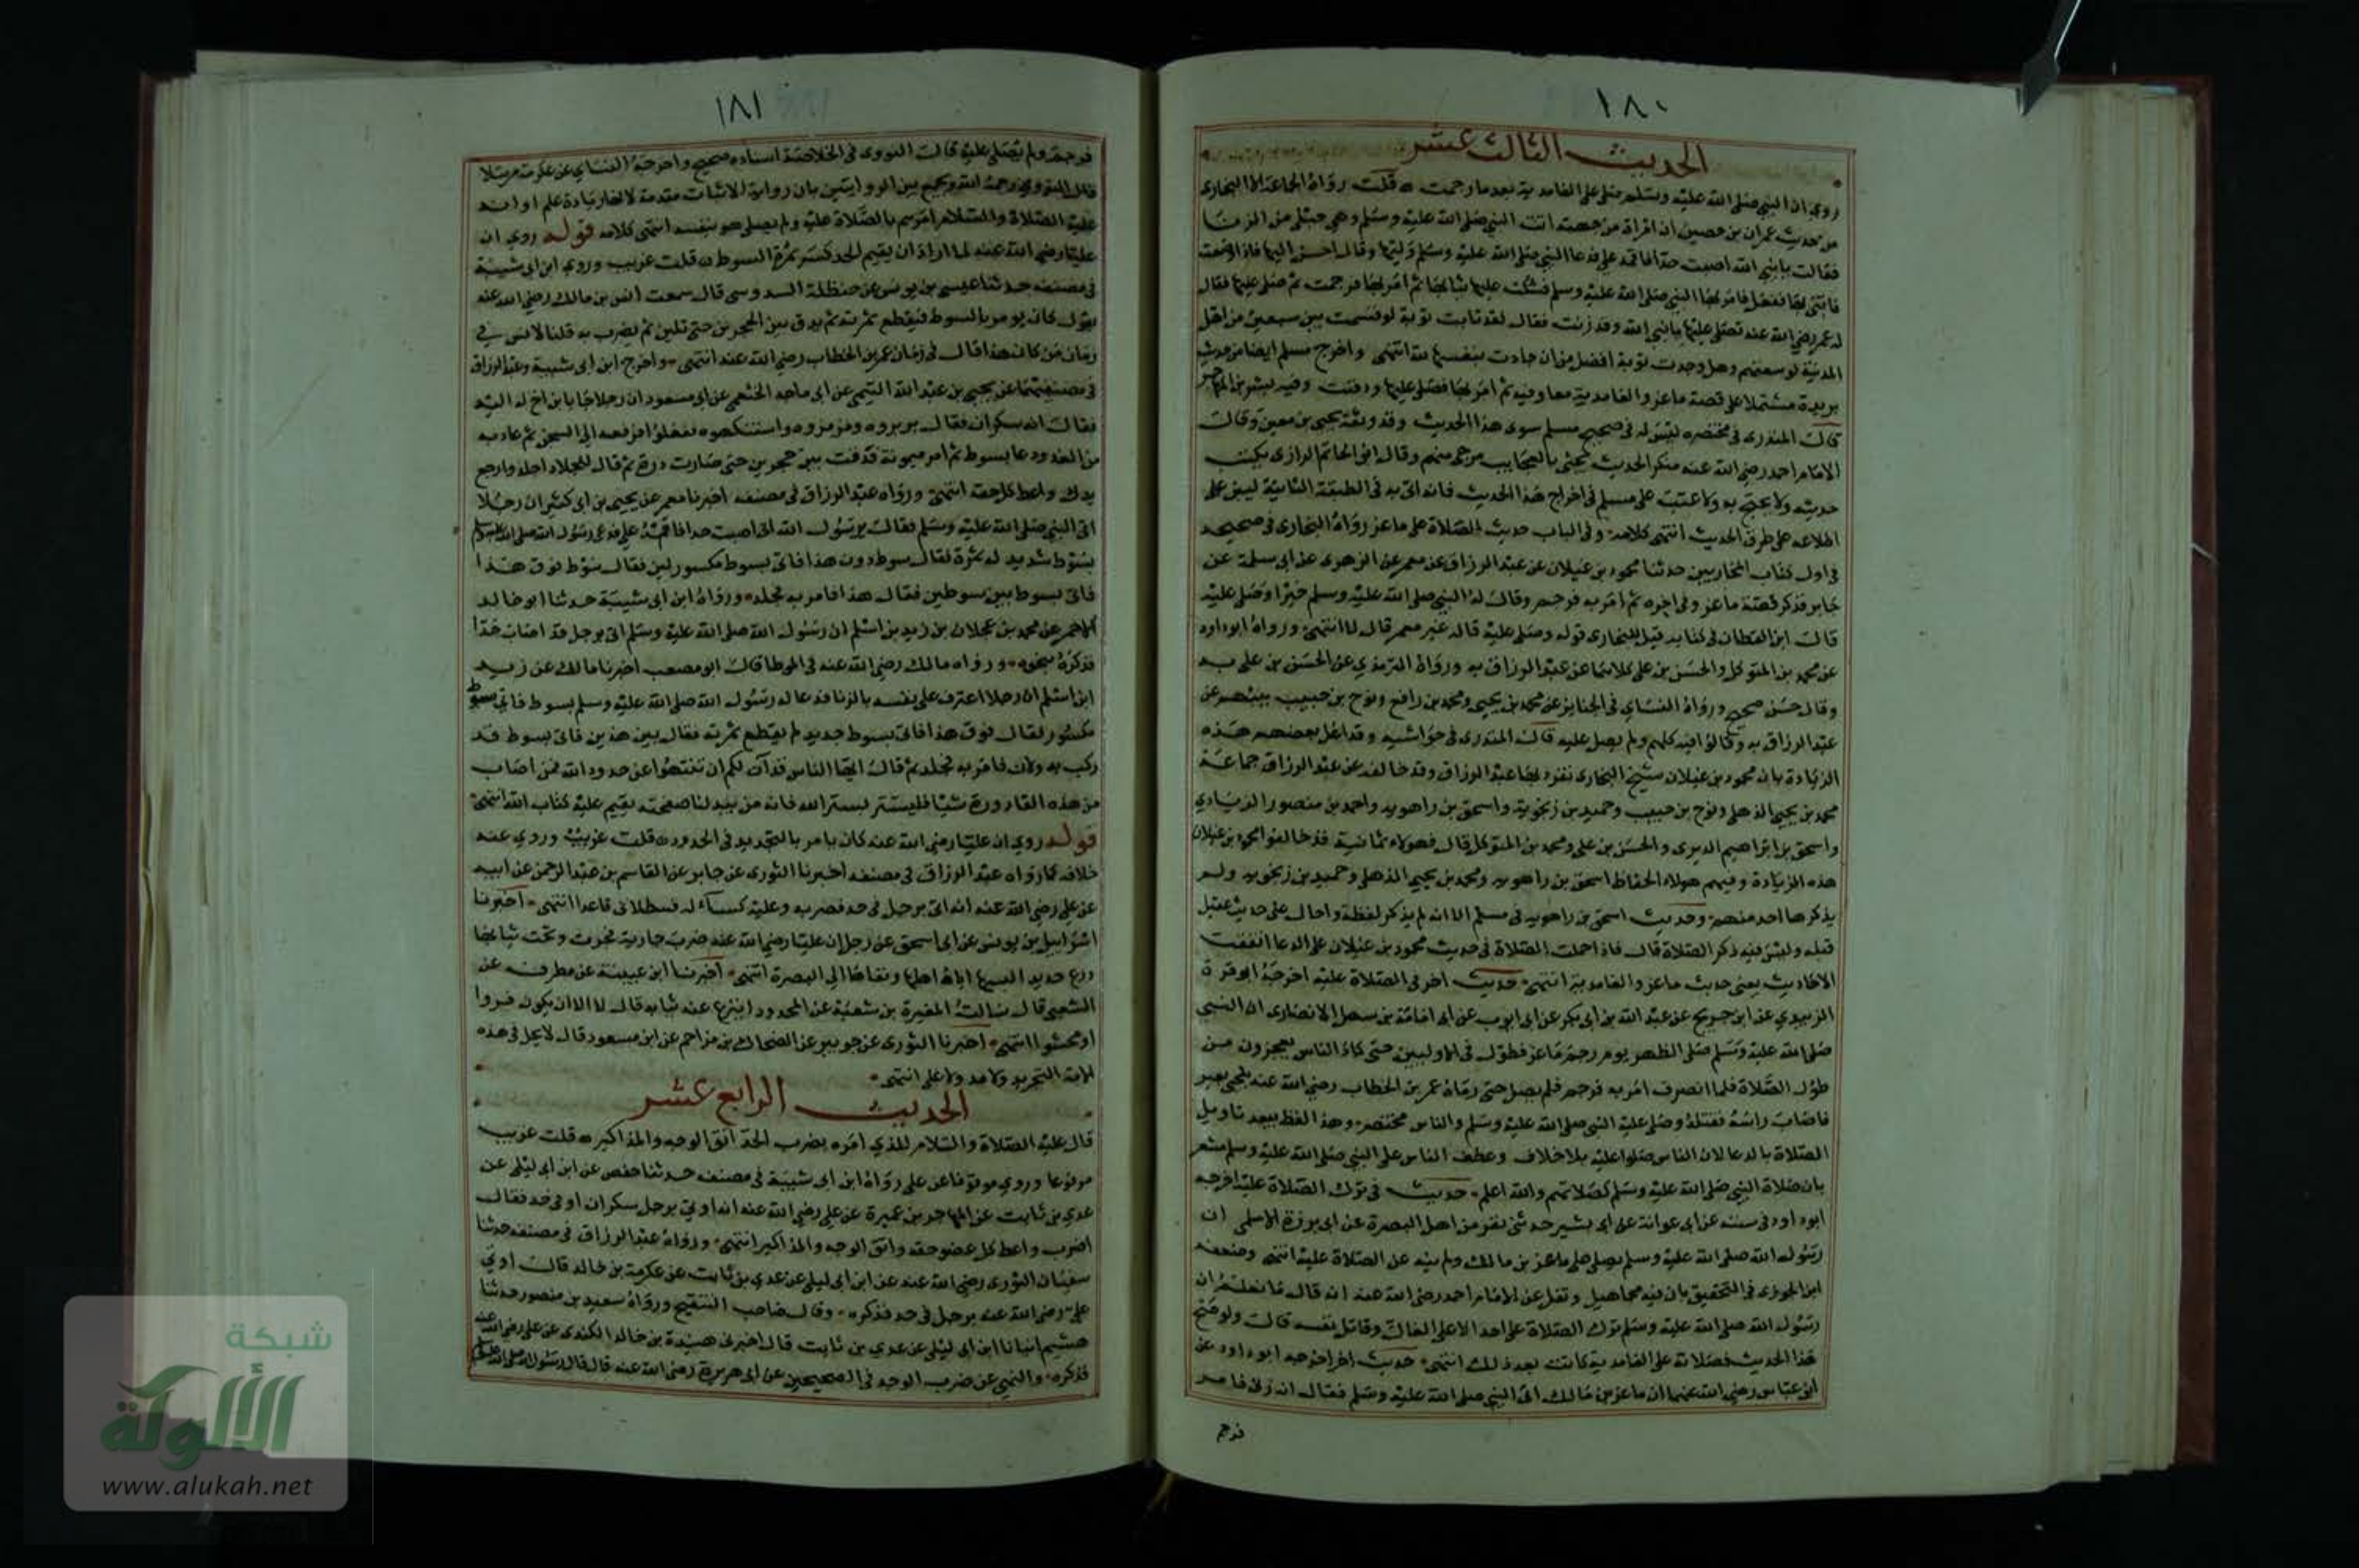 ١٨٠
الحديث الثالث عشر
روي ان النبي صلى الله عليه وسلم صلى على الغامدية بعد ما رجمت قلت رواه الجماعة الا البخاري
من حديث عمران بن حصين ان امراة من جهينة اتت النبي صلى الله عليه وسلم وهي حبلى من الزنا
فقالت يا نبي الله اصبت حدا فاقمه علي فدعا النبي صلى الله عليه وسلم وليها وقال احسن اليها فاذا وضعت
فائتني بها ففعل فامر بها النبي صلى الله عليه وسلم فشكت عليها ثيابها ثم امر بها فرجمت ثم صلى عليها فقال
له عمر رضي الله عنه تصلي عليها يا نبي الله وقد زنت فقال لقد تابت توبة لو قسمت بين سبعين من اهل
المدينة لوسعتهم وهل وجدت توبة افضل من ان جادت بنفسها لله انتهى واخرج مسلم ايضا من حديث
بريدة مشتملا على قصة ماعز والغامدية معا وفيه ثم امر بها فصلى عليها ودفنت وفيه بشير بن المهاجر
قال المنذري في مختصره ليس له في صحيح مسلم سوى هذا الحديث وقد وثقه يحيى بن معين وقال
الامام احمد رضي الله عنه منكر الحديث يجئ بالعجايب مرجى متهم وقال ابو الحاتم الرازي يكتب
حديثه ولا يحتج به ولا عتب على مسلم في اخراج هذا الحديث فانه اتى به في الطبقة الثانية ليبين
اطلاعه على طرق الحديث انتهى كلامه وفي الباب حديث الصلاة على ماعز رواه البخاري في صحيحه
في اول كتاب المحاربين حدثنا محمود بن غيلان عن عبد الرزاق عن معمر عن الزهري عن ابي سلمة عن
جابر فذكر قصة ماعز وفي اخره ثم امر به فرجم وقال له النبي صلى الله عليه وسلم خيرا وصلى عليه
قال ابن القطان في كتابه قيل للبخاري قوله وصلى عليه قاله غير معمر قال لا انتهى ورواه ابو داود
عن محمد بن المتوكل والحسن بن علي كلاهما عن عبد الرزاق به ورواه الترمذي عن الحسن بن علي به
وقال حسن صحيح ورواه النساي في الجنايز عن محمد بن يحيى ومحمد بن رافع ونوح بن حبيب
عبد الرزاق به وقالوا فيه كلهم ولم يصل عليه قال المنذري في حواشيه وقد اعل بعضهم هذه
الزيادة بان محمود بن غيلان شيخ البخاري تفرد بها عن عبد الرزاق وقد خالفه عن عبد الرزاق جماعة
محمد بن يحيى الذهلي ونوح بن حبيب وحميد بن زنجويه واسحق بن راهويه واحمد بن منصور الرمادي
واسحق بن ابراهيم الدبري والحسن بن علي ومحمد بن المتوكل قال فهولاء ثمانية قد خالفوا محمود بن غيلان
هذه الزيادة وفيهم هولاء الحفاظ اسحق بن راهويه ومحمد بن يحيى الذهلي وحميد بن زنجويه ولم
يذكرها احد منهم وحديث اسحق بن راهويه في مسلم الا انه لم يذكر لفظه واحال على حديث عقيل
قبله وليس فيه ذكر الصلاة قال فاذا حملت الصلاة في حديث محمود بن غيلان على الدعا اتفقت
الاحاديث يعني حديث ماعز والغامدية انتهى حديث اخر في الصلاة عليه اخرجه ابو قرة
الزبيدي عن ابن جريج عن عبد الله بن ابي بكر عن ابي ايوب عن ابي امامة بن سهل الانصاري ان النبي
صلى الله عليه وسلم صلى الظهر يوم رجم ماعز فطول في الاوليين حتى كاد الناس يعجزون من
طول الصلاة فلما انصرف امر به فرجم فلم يصل حتى رماه عمر بن الخطاب رضي الله عنه بلحي بعير
فاصاب راسه فقتله وصلى عليه النبي صلى الله عليه وسلم والناس مختصر وهذا لفظ يبعد تاويل
الصلاة بالدعا لان الناس صلوا عليه بلا خلاف وعطف الناس على النبي صلى الله عليه وسلم مشعر
بان صلاة النبي صلى الله عليه وسلم كصلاتهم والله اعلم حديث في ترك الصلاة عليه اخرجه
ابو داود في سننه عن ابي عوانة عن ابي بشير حدثني نفر من اهل البصرة عن ابي برزة الاسلمي ان
رسول الله صلى الله عليه وسلم لم يصل على ماعز بن مالك ولم ينه عن الصلاة عليه انتهى وضعفه
ابن الجوزي في التحقيق بان فيه مجاهيل ونقل عن الامام احمد رضي الله عنه انه قال ما نعلم ان
رسول الله صلى الله عليه وسلم ترك الصلاة على احد الا على الغال وقاتل نفسه قال ولو صح
هذا الحديث فصلاته على الغامدية كانت بعد ذلك انتهى حديث اخر اخرجه ابو داود عن
ابن عباس رضي الله عنهما ان ماعز بن مالك اتى النبي صلى الله عليه وسلم فقال انه زنى فامر
فرجم
١٨١
فرجم ولم يصل عليه قال النووي في الخلاصة اسناده صحيح واخرجه النساي عن عكرمة مرسلا
قال النووي رحمه الله ويجمع بين الروايتين بان رواية الاثبات مقدمة لانها زيادة علم او انه
عليه الصلاة والسلام امرهم بالصلاة عليه ولم يصل هو بنفسه انتهى كلامه قوله روي ان
عليا رضي الله عنه لما اراد ان يقيم الحد كسر ثمرة السوط قلت غريب وروي ابن ابي شيبة
في مصنفه حدثنا عيسى بن يونس عن حنظلة السدوسي قال سمعت انس بن مالك رضي الله عنه
يقول كان يومر بالسوط فيقطع ثمرته ثم يدق بين الحجرين حتى يلين ثم يضرب به قلنا لانس في
زمان من كان هذا قال في زمان عمر بن الخطاب رضي الله عنه انتهى واخرج ابن ابي شيبة وعبد الرزاق
في مصنفيهما عن يحيى بن عبد الله التيمي عن ابي ماجد الحنفي عن ابن مسعود ان رجلا جا بابن اخ له اليه
فقال انه سكران فقال ترتروه ومزمزوه واستنكهوه ففعلوا فرفعه الى السجن ثم عاد به
من الغد ودعا بسوط ثم امر بثمرته فدقت بين حجرين حتى صارت درة ثم قال للجلاد اجلد وارجع
يدك واعط كل حقه انتهى ورواه عبد الرزاق في مصنفه اخبرنا معمر عن يحيى بن ابي كثير ان رجلا
اتى النبي صلى الله عليه وسلم فقال يرسول الله اني اصبت حدا فاقمه علي فدعى رسول الله صلى الله عليه وسلم
بسوط شديد له ثمرة فقال سوط دون هذا فاتى بسوط مكسور لين فقال سوط فوق هذا
فاتى بسوط بين سوطين فقال هذا فامر به فجلد ورواه ابن ابي شيبة حدثنا ابو خالد
الاحمر عن محمد بن عجلان بن زيد بن اسلم ان رسول الله صلى الله عليه وسلم اتى برجل قد اصاب حدا
فذكره بنحوه ورواه مالك رضي الله عنه في الموطا قال ابو مصعب اخبرنا مالك عن زيد
ابن اسلم ان رجلا اعترف على نفسه بالزنا فدعا له رسول الله صلى الله عليه وسلم بسوط فاتي بسوط
مكسور فقال فوق هذا فاتى بسوط جديد لم يقطع ثمرته فقال بين هذين فاتى بسوط قد
ركب به ولان فامر به فجلد ثم قال ايها الناس قد آن لكم ان تنتهوا عن حدود الله فمن اصاب
من هذه القاذورة شيا فليستتر بستر الله فانه من يبد لنا صفحته يقيم عليه كتاب الله انتهى
قوله روي ان عليا رضي الله عنه كان يامر بالتجريد في الحدود قلت غريب وروي عنه
خلافه كما رواه عبد الرزاق في مصنفه اخبرنا الثوري عن جابر عن القاسم بن عبد الرحمن عن ابيه
عن علي رضي الله عنه انه اتى برجل في حد فضربه وعليه كساء له قسطلاني قاعدا انتهى اخبرنا
اسرائيل بن يونس عن ابي اسحق عن رجل ان عليا رضي الله عنه ضرب جارية فجرت وتحت ثيابها
درع حديد البسها اياه اهلها ونفاها الى البصرة انتهى اخبرنا ابن عيينة عن مطرف عن
الشعبي قال سالت المغيرة بن شعبة عن المحدود اينزع عنه ثيابه قال لا الا ان يكون فروا
او محشوا انتهى اخبرنا الثوري عن جويبر عن الضحاك بن مزاحم عن ابن مسعود قال لا يحل في هذه
الامة التجريد ولا مد ولا غل انتهى
الحديث الرابع عشر
قال عليه الصلاة والسلام للذي امره بضرب الحد اتق الوجه والمذاكير قلت غريب
مرفوعا وروي موقوفا عن علي رواه ابن ابي شيبة في مصنفه حدثنا حفص عن ابن ابي ليلى عن
عدي بن ثابت عن المهاجر بن عميرة عن علي رضي الله عنه انه اوتي برجل سكران او في حد فقال
اضرب واعط كل عضو حقه واتق الوجه والمذاكير انتهى ورواه عبد الرزاق في مصنفه حدثنا
سفيان الثوري رضي الله عنه عن ابن ابي ليلى عن عدي بن ثابت عن عكرمة بن خالد قال اوتي
علي رضي الله عنه برجل في حد فذكره وقال صاحب التنقيح ورواه سعيد بن منصور حدثنا
هشيم انبانا ابن ابي ليلى عن عدي بن ثابت قال اخبرني هنيدة بن خالد الكندي عن علي رضي الله عنه
فذكره والنهي عن ضرب الوجه في الصحيحين عن ابي هريرة رضي الله عنه قال قال رسول الله صلى الله عليه وسلم
شبكة
الألوكة
www.alukah.net